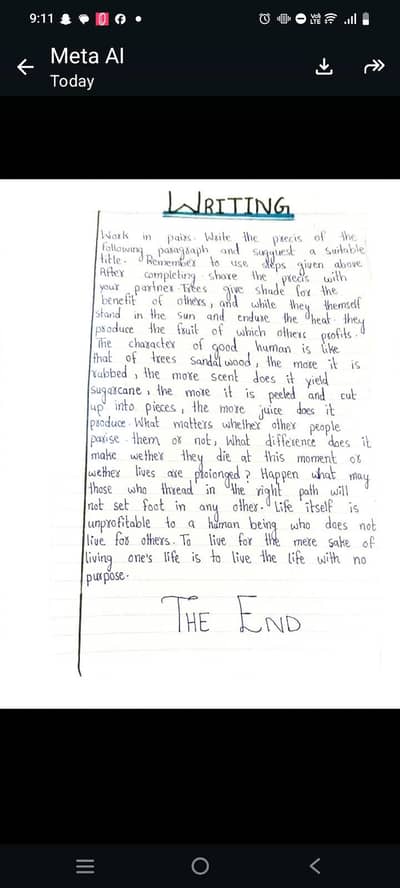 9:11
Meta AI
Today
WRITING
Work in pairs. Write the precis of the
following paragraph and suggest a suitable
title. Remember to use steps given above
After completing share the precis with
your partner Trees give shade for the
benefit of others, and while they themself
stand in the sun and endure the heat they
produce the fruit of which others profits.
The character of good human is like
that of trees sandal wood, the more it is
rubbed, the more scent does it yield
sugarcane, the more it is peeled and cut
up into pieces, the more juice does it
produce. What matters whether other people
parise them or not, What difference does it
make wether they die at this moment or
wether lives are prolonged? Happen what may
those who thread in the right path will
not set foot in any other. Life itself is
unprofitable to a human being who does not
live for others. To live for the mere sake of
living one's life is to live the life with no
purpose.
THE END